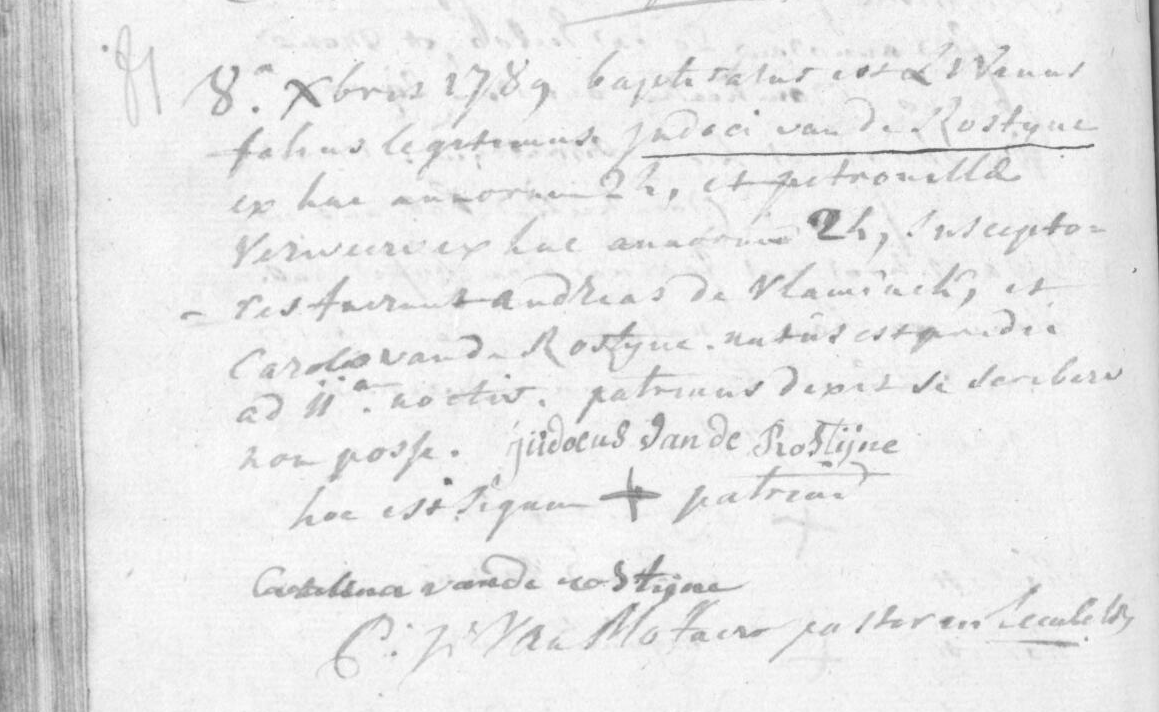 8.a Xbris 1789 baptisatus est Livinus
filius legitimus judoci van de Rostyne
ex hac annorum 24, et petronilla
Verweire ex hac annorum 24, suscepto=
- res fuerunt andreas de Vlaminck, et
Carola van de Rostyne. natus est pridie
ad 11a. noctis. patrinus dixit se scribere
non posse. judocus Van de Rostijne
hoc est signum + patrini
Carolina van de rostijne
C: j: Van Mossaer pastor in